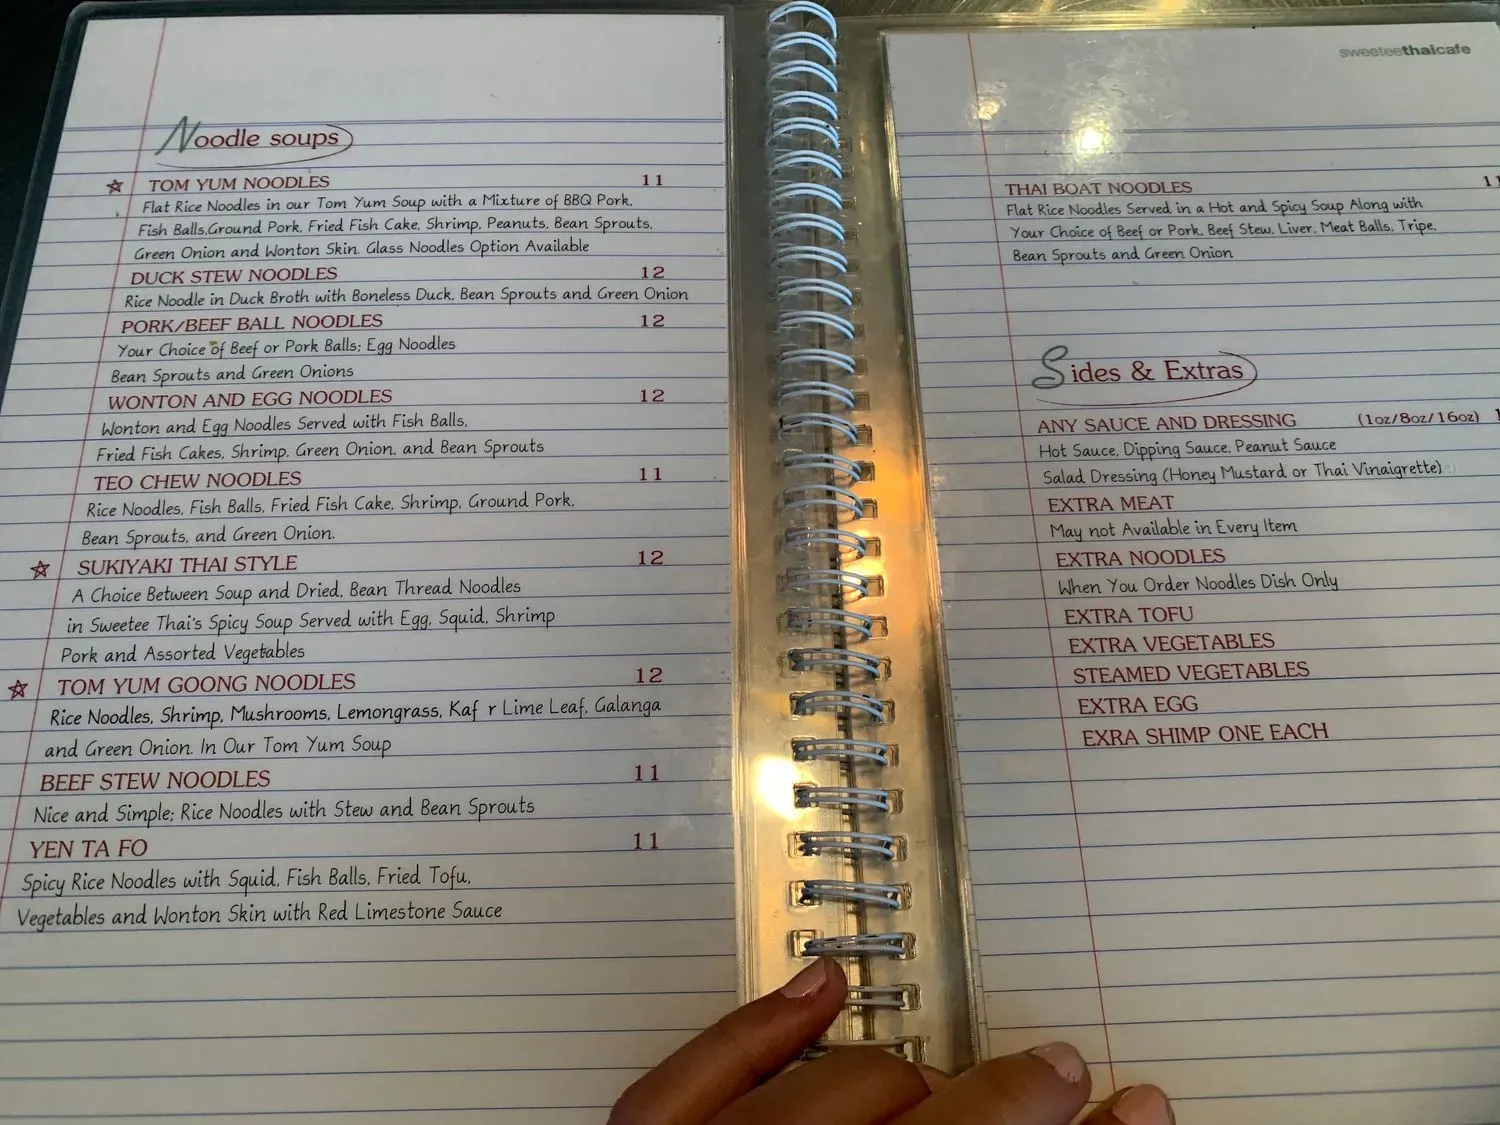 Noodle soups
☆ TOM YUM NOODLES 11
Flat Rice Noodles in our Tom Yum Soup with a Mixture of BBQ Pork,
Fish Balls,Ground Pork, Fried Fish Cake, Shrimp, Peanuts, Bean Sprouts,
Green Onion and Wonton Skin. Glass Noodles Option Available
DUCK STEW NOODLES 12
Rice Noodle in Duck Broth with Boneless Duck, Bean Sprouts and Green Onion
PORK/BEEF BALL NOODLES 12
Your Choice of Beef or Pork Balls; Egg Noodles
Bean Sprouts and Green Onions
WONTON AND EGG NOODLES 12
Wonton and Egg Noodles Served with Fish Balls,
Fried Fish Cakes, Shrimp, Green Onion, and Bean Sprouts
TEO CHEW NOODLES 11
Rice Noodles, Fish Balls, Fried Fish Cake, Shrimp, Ground Pork,
Bean Sprouts, and Green Onion.
☆ SUKIYAKI THAI STYLE 12
A Choice Between Soup and Dried, Bean Thread Noodles
in Sweetee Thai's Spicy Soup Served with Egg, Squid, Shrimp
Pork and Assorted Vegetables
☆ TOM YUM GOONG NOODLES 12
Rice Noodles, Shrimp, Mushrooms, Lemongrass, Kaf r Lime Leaf, Galanga
and Green Onion. In Our Tom Yum Soup
BEEF STEW NOODLES 11
Nice and Simple; Rice Noodles with Stew and Bean Sprouts
YEN TA FO 11
Spicy Rice Noodles with Squid, Fish Balls, Fried Tofu,
Vegetables and Wonton Skin with Red Limestone Sauce
sweeteethaicafe
THAI BOAT NOODLES 11
Flat Rice Noodles Served in a Hot and Spicy Soup Along with
Your Choice of Beef or Pork, Beef Stew, Liver, Meat Balls, Tripe,
Bean Sprouts and Green Onion
Sides & Extras
ANY SAUCE AND DRESSING (1oz/8oz/16oz)
Hot Sauce, Dipping Sauce, Peanut Sauce
Salad Dressing (Honey Mustard or Thai Vinaigrette)
EXTRA MEAT
May not Available in Every Item
EXTRA NOODLES
When You Order Noodles Dish Only
EXTRA TOFU
EXTRA VEGETABLES
STEAMED VEGETABLES
EXTRA EGG
EXRA SHIMP ONE EACH